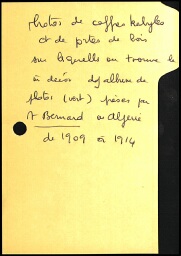 photos de coffres kabyles
et de portes de bois
sur lesquelles on trouve le
à decors de album de
photos (vert) prises par
A Bernard en Algérie
de 1909 à 1914